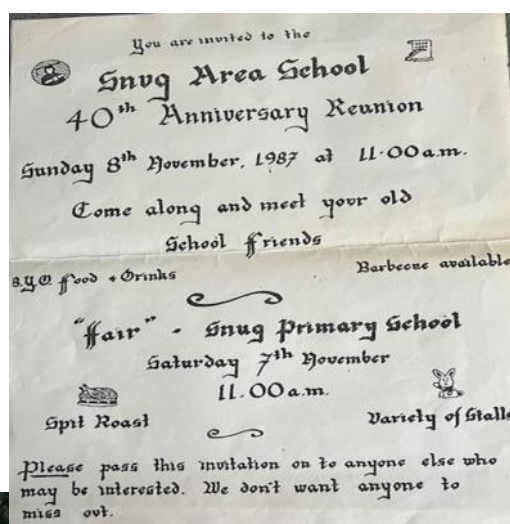 You are invited to the
Snug Area School
40th Anniversary Reunion
Sunday 8th November, 1987 at 11.00a.m.
Come along and meet your old
School Friends
B.Y.O. Food + Drinks
Barbecue available
"Fair" - Snug Primary School
Saturday 7th November
11.00a.m.
Spit Roast
Variety of Stalls
Please pass this invitation on to anyone else who
may be interested. We don't want anyone to
miss out.